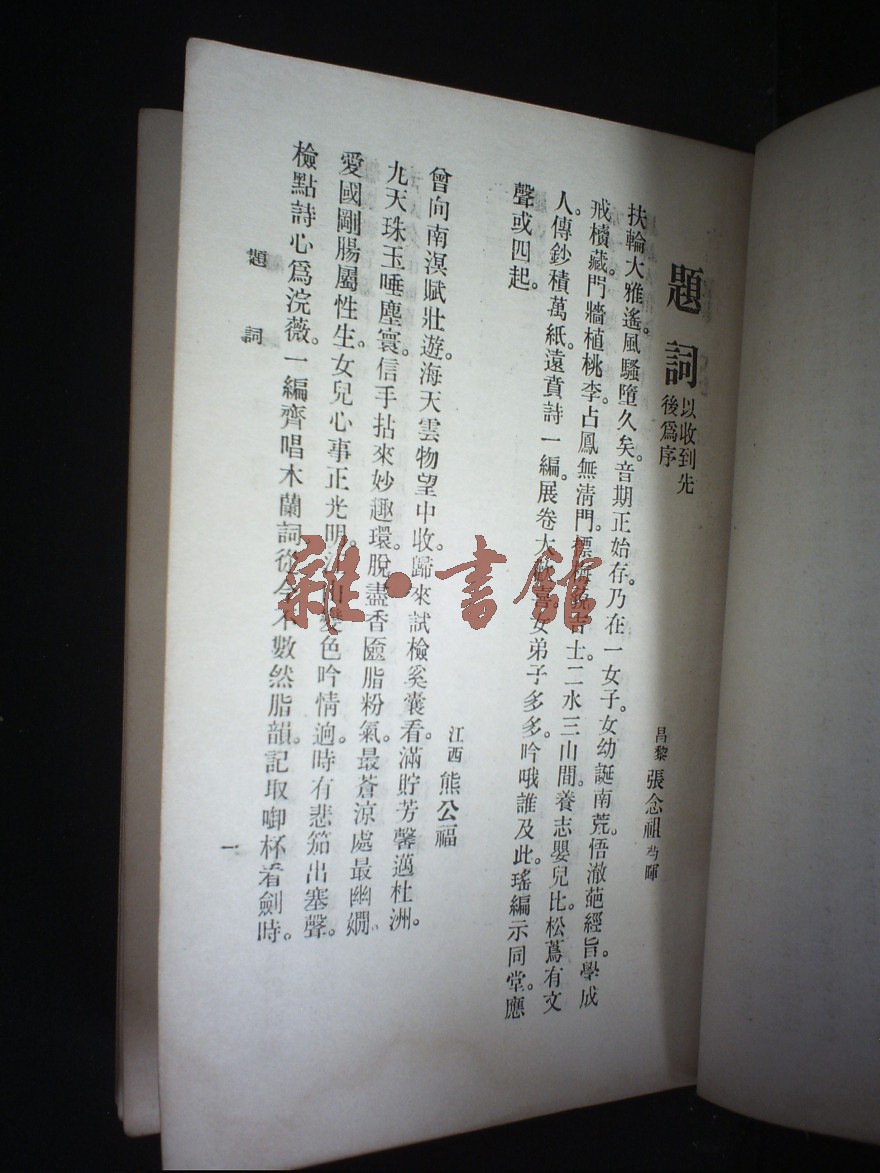 題詞 以收到先後爲序
昌黎 張念祖 芍暉
扶輪大雅遙。風騷墮久矣。音期正始存。乃在一女子。女幼誕南荒。悟澈葩經旨。學成
戒檳藏。門牆植桃李。占鳳無淸門。士。二水三山間。養志嬰兒比。松蔦有文
人。傳鈔積萬紙。遠賁詩一編。展卷大喜。女弟子多多。吟哦誰及此。瑤編示同堂。應
聲或四起。
江西 熊公福
曾向南溟賦壯遊。海天雲物望中收。歸來試檢奚囊看。滿貯芳馨邁杜洲。
九天珠玉唾塵寰。信手拈來妙趣環。脫盡香奩脂粉氣。最蒼涼處最幽嫺。
愛國剛腸屬性生。女兒心事正光明。色吟情逈。時有悲笳出塞聲。
檢點詩心爲浣薇。一編齊唱木蘭詞。從今不數然脂韻。記取啣杯看劍時。
題詞
一
雜·書館